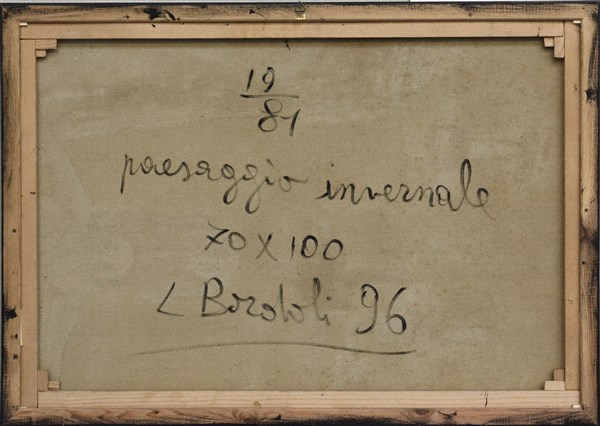 19
81
paesaggio invernale
70 X 100
L Bordoli 96